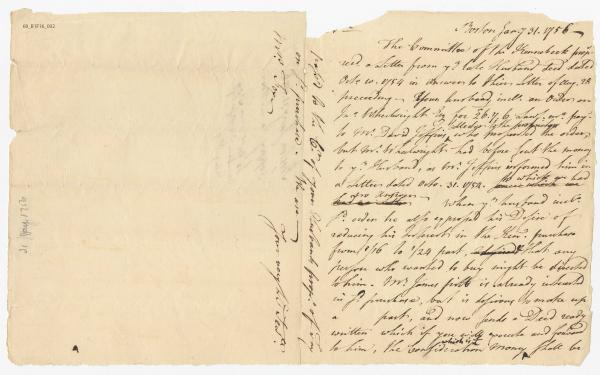 Boston Jany 31. 1756
The Committee of the Kennebeck prop
rec'd a Letter from yr late Husband dec'd dated
Octo. 10. 1754 in answer to their Letter of Aug. 28
preceeding. Your husband incl. an Order on
Wheelwright for £6.11.6 pay.
to Mr. David Jeffries who proposed the order,
but Mr. Wheelwright had before sent the money
to yr Husband, as Mr. Jeffries informed him in
a Letter dated Octo. 31. 1754. to which we had
no answer. When yr husband incl.
sd. order he also expressed his Desire of
reducing his Interest in the Ken. purchase
from 1/16 to 1/24 part, & that any
person who wanted to buy might be directed
to him. Mr. James Pitts is already interested
in sd. purchase, but is desirous to make up
a part, and now sends a Deed ready
written which if you will execute and forward
to him, the consideration money which is shall be
paid to the of your Husbands
on sd purchase. We are
Your very h'ble Serv.
31 Jany 1756
60_B1F16_002